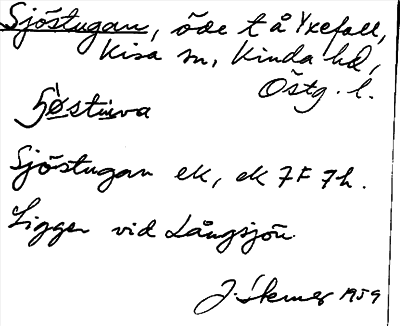 Sjöstugan, öde t å Yxefall,
Kisa sn, Kinda hd,
Östg. l.
Sjöstugan ek, ek 7F 7h.
Ligger vid Långsjön
1959